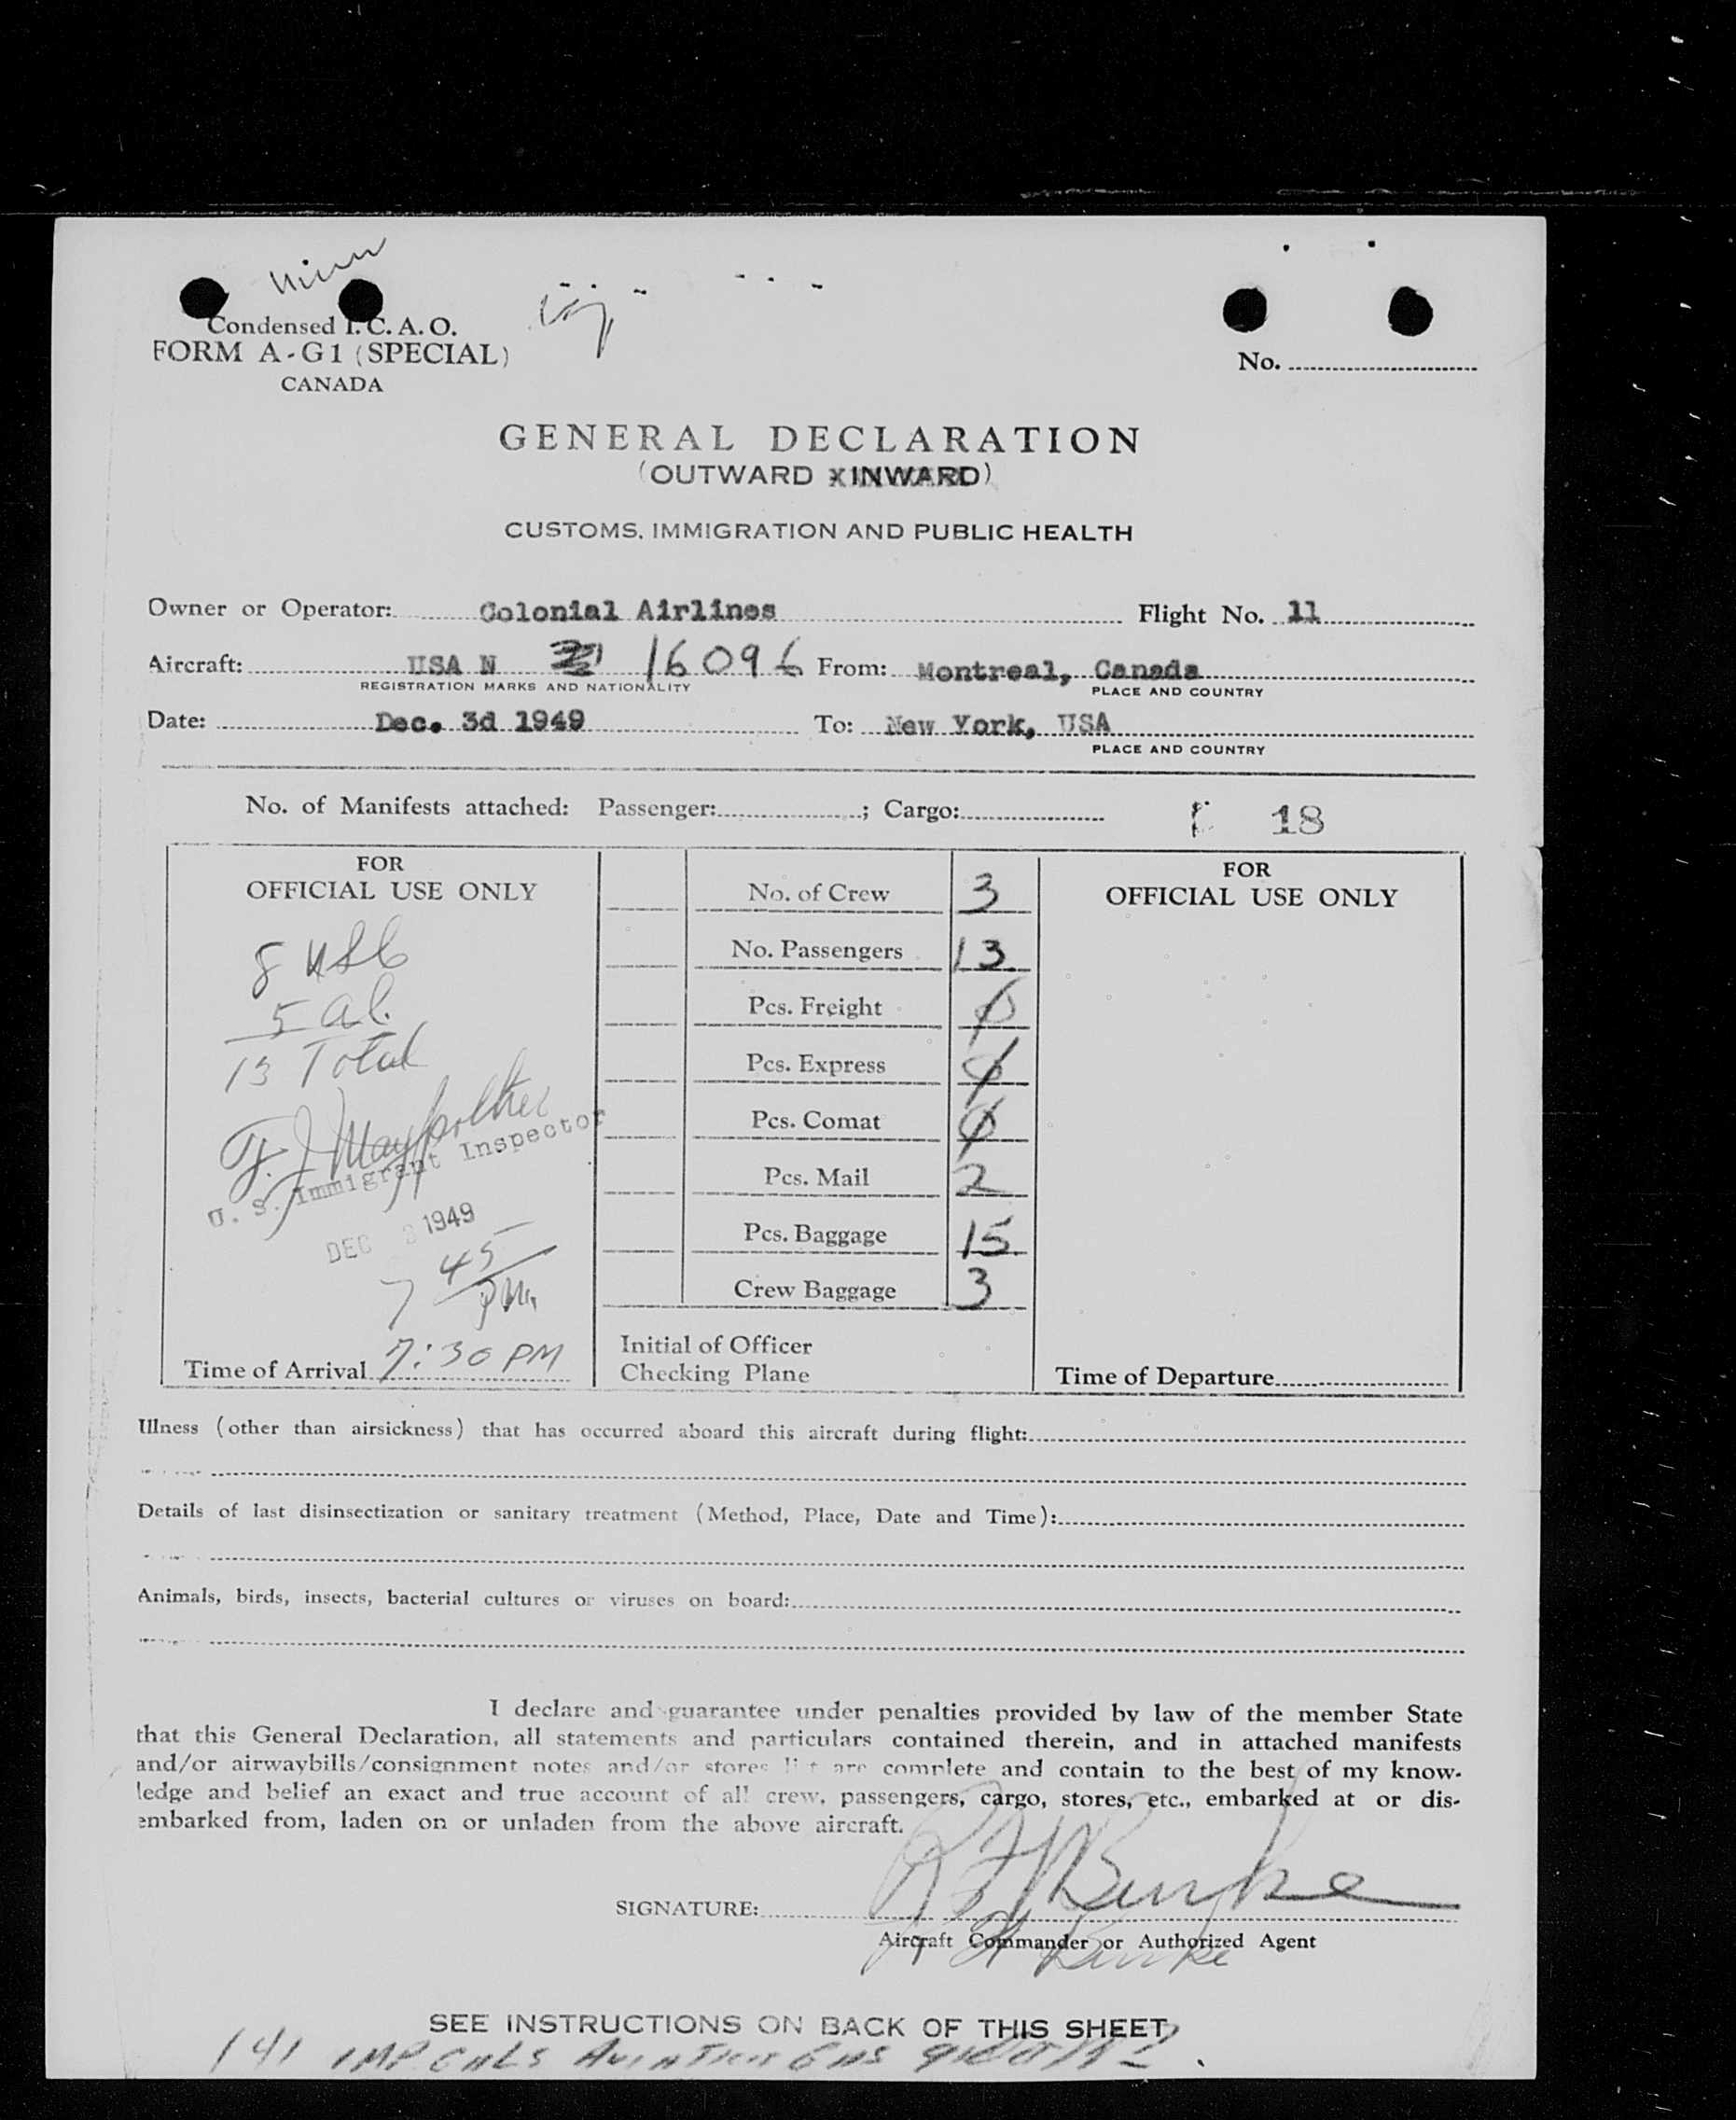 Condensed I. C. A. O.
FORM A-G1 (SPECIAL)
CANADA
No.
GENERAL DECLARATION
(OUTWARD X INWARD)
CUSTOMS, IMMIGRATION AND PUBLIC HEALTH
Owner or Operator: Colonial Airlines Flight No. 11
Aircraft: USA N 16096 From: Montreal, Canada
REGISTRATION MARKS AND NATIONALITY PLACE AND COUNTRY
Date: Dec. 3d 1949 To: New York, USA
PLACE AND COUNTRY
No. of Manifests attached: Passenger: ; Cargo: 18
FOR
OFFICIAL USE ONLY
8 USC
5 al.
13 Total
U. S. Immigrant Inspector
DEC 3 1949
7 45 PM.
Time of Arrival 7:30 PM
No. of Crew 3
No. Passengers 13
Pcs. Freight 0
Pcs. Express 0
Pcs. Comat 0
Pcs. Mail 2
Pcs. Baggage 15
Crew Baggage 3
Initial of Officer
Checking Plane
FOR
OFFICIAL USE ONLY
Time of Departure
Illness (other than airsickness) that has occurred aboard this aircraft during flight:
Details of last disinsectization or sanitary treatment (Method, Place, Date and Time):
Animals, birds, insects, bacterial cultures or viruses on board:
I declare and guarantee under penalties provided by law of the member State
that this General Declaration, all statements and particulars contained therein, and in attached manifests
and/or airwaybills/consignment notes and/or stores list are complete and contain to the best of my know-
ledge and belief an exact and true account of all crew, passengers, cargo, stores, etc., embarked at or dis-
embarked from, laden on or unladen from the above aircraft.
SIGNATURE: Burke
Aircraft Commander or Authorized Agent
Burke
SEE INSTRUCTIONS ON BACK OF THIS SHEET
141 IMP. GALS AVIATION GAS